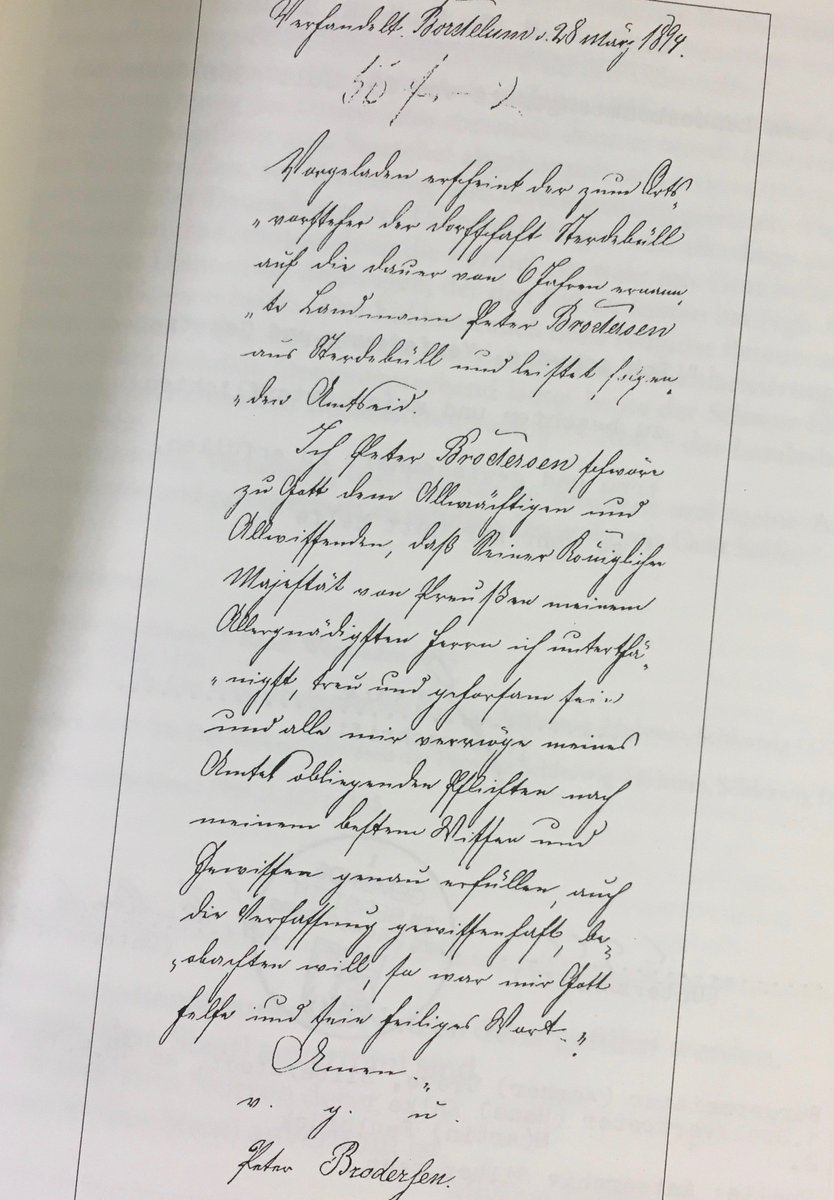 Verhandelt. Bordelum d. 28 März 1894.
Vorgeladen erscheint der zum Orts„
„vorsteher der Dorfschaft Sterdebüll
auf die Dauer von 6 Jahren ernann„
„te Landmann Peter Brodersen
aus Sterdebüll und leistet folgen„
„den Amtseid.
Ich Peter Brodersen schwöre
zu Gott dem Allmächtigen und
Allwissenden, daß Seiner Königlichen
Majestät von Preußen meinem
Allergnädigsten Herrn ich unterthä„
„nigst, treu und gehorsam sein
und alle mir vermöge meines
Amtes obliegenden Pflichten nach
meinem bestem Wissen und
Gewissen genau erfüllen, auch
die Verfassung gewissenhaft, be„
„obachten will, so war mir Gott
helfe und sein heiliges Wort.„
Amen.„
v. g. u.
Peter Brodersen.